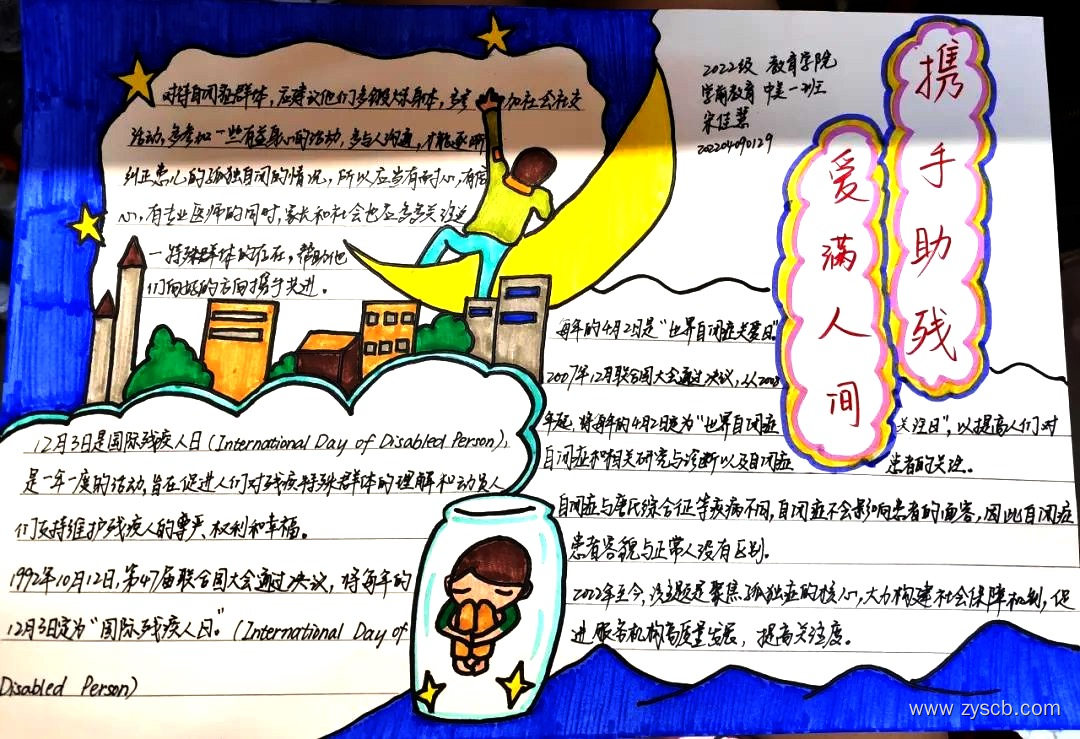 携手助残
爱满人间
2022级 教育学院
学前教育 中美一班
宋佳慧
202204090129
对待自闭症群体，应建议他们多锻炼身体，多参加社会社交
活动，多参加一些有益身心的活动，多与人沟通，才能逐渐
纠正患儿的孤独自闭的情况，所以应当有耐心，有信
心，有专业医师的同时，家长和社会也应多多关注这
一特殊群体的存在，帮助他
们向好的方向携手共进。
12月3日是国际残疾人日(International Day of Disabled Person),
是一年一度的活动，旨在促进人们对残疾特殊群体的理解和动员人
们支持维护残疾人的尊严、权利和幸福。
1992年10月12日，第47届联合国大会通过决议，将每年的
12月3日定为“国际残疾人日。”(International Day of
Disabled Person)
每年的4月2日是“世界自闭症关爱日”
2007年12月联合国大会通过决议，从2008
年起，将每年的4月2日定为“世界自闭症关注日”，以提高人们对
自闭症和相关研究与诊断以及自闭症患者的关注。
自闭症与唐氏综合征等疾病不同，自闭症不会影响患者的面容，因此自闭症
患者容貌与正常人没有区别。
2022年至今，该主题是聚焦孤独症的核心，大力构建社会保障机制，促
进服务机构高质量发展，提高关注度。
www.zyscb.com